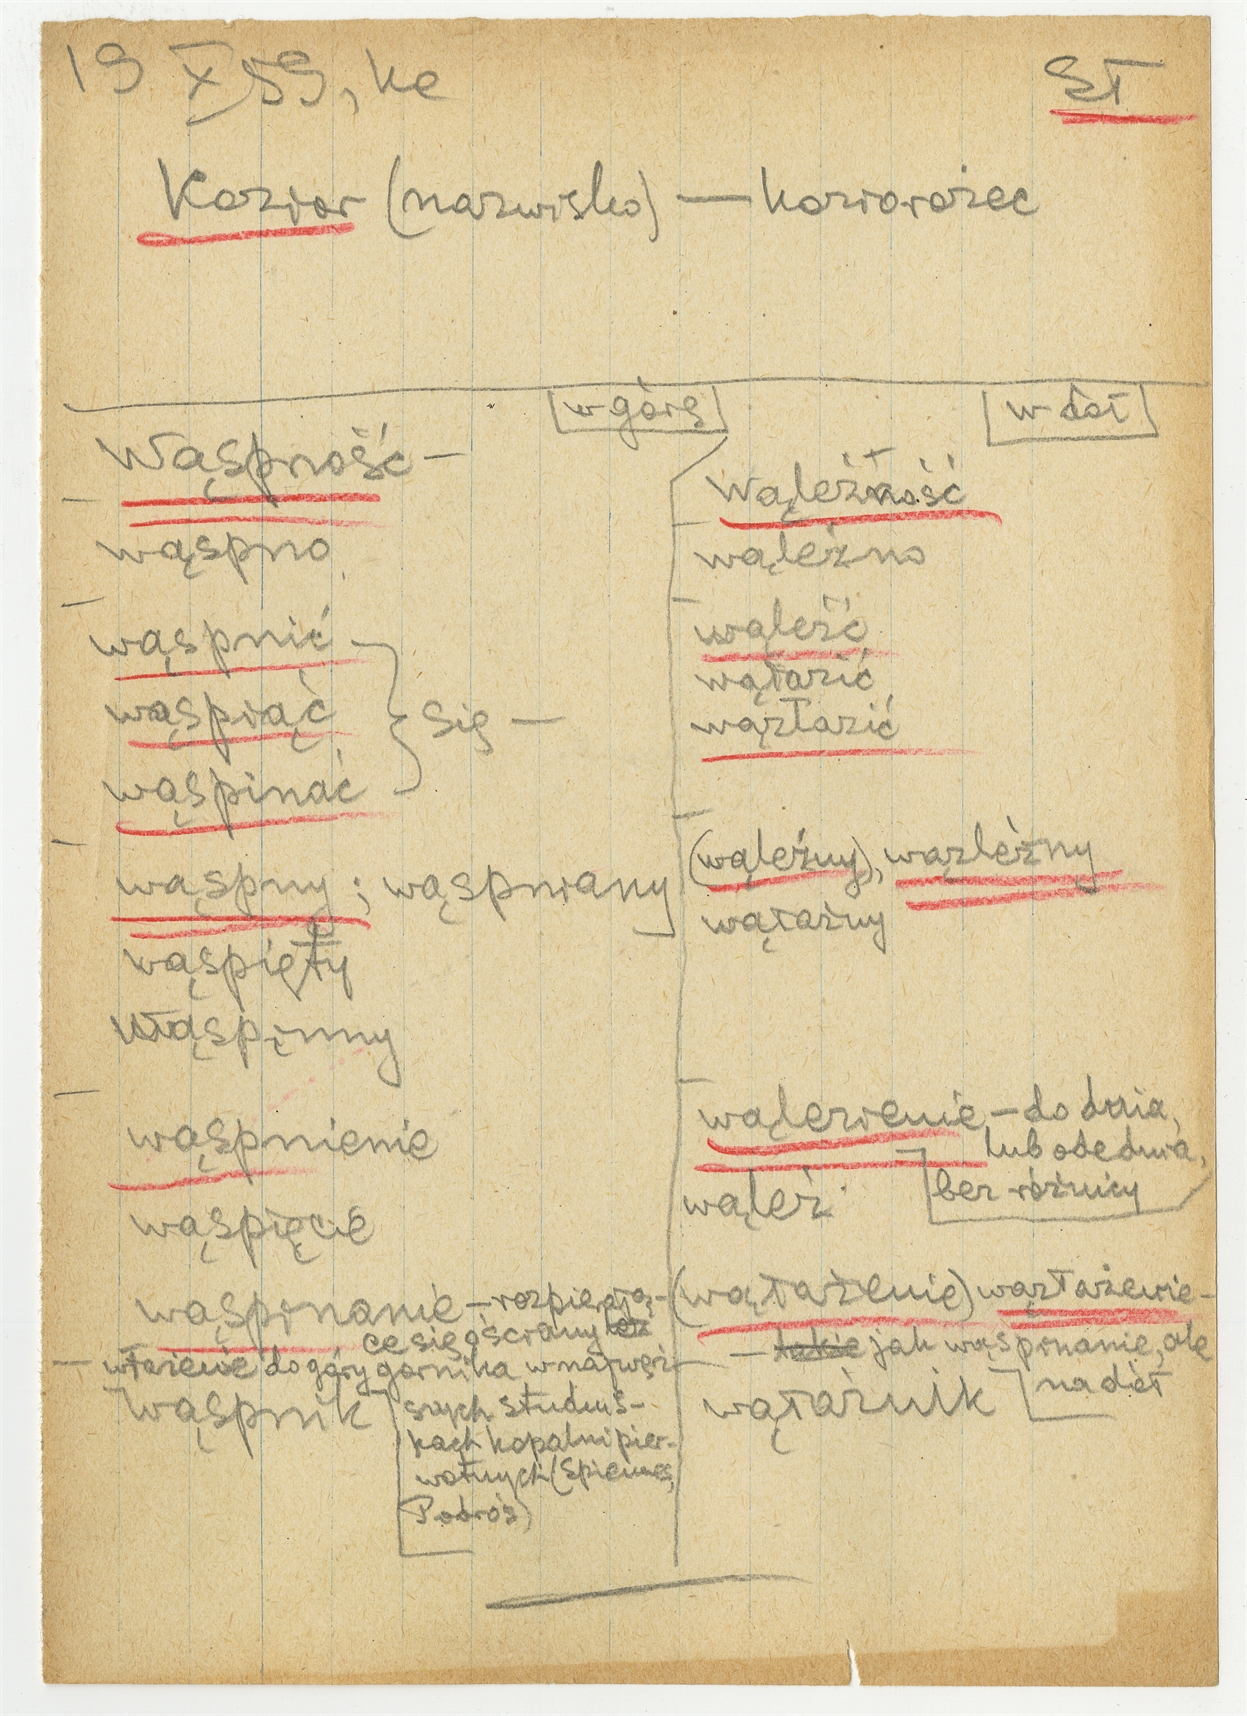 19 X 59, ke
SŁ
Kozior (nazwisko) — koziorożec
w górę
w dół
Wąspność —
wąspno
wąspnić
wąspiąć
wąspinać
się —
wąspny; wąspniany
wąspięty
wąspinny
wąspnienie
wąspięcie
wąspinanie — rozpierają-
ce się o ściany
włażenie do góry górnika w najwęż-
szych studniś-
kach kopalni pier-
wotnych (Spiennes,
Podróż)
wąspnik
Wąleźność
wąleźno
wąleźć
wąłazić
wązłazić
(wąleźny), wązleźny
wąłaźny
wąlezienie — do dnia,
lub obedwa,
bez różnicy
wąleź
(wąłażenie) wązłażenie —
— takie jak wąspinanie, ale
na dół
wąłaźnik